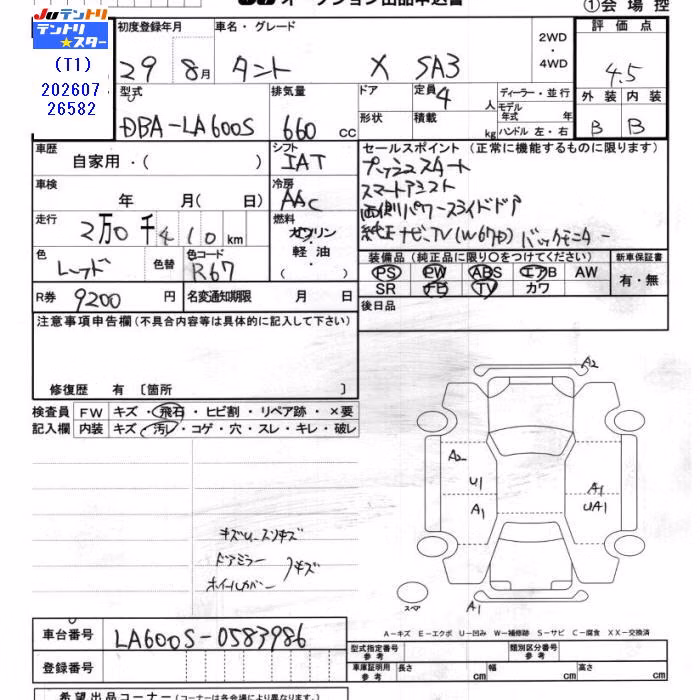 JU オークション出品申込書
①会場控
JUテントリ
テントリ★スター
(T1)
202607
26582
初度登録年月
29年 8月
車名・グレード
タント X SA3
2WD
・
4WD
評価点
4.5
外装 内装
B B
型式
DBA-LA600S
排気量
660 cc
ドア
定員 4 人
形状
積載 kg
ディーラー・並行
モデル年式 年
ハンドル 左・右
車歴
自家用・( )
シフト
IAT
セールスポイント (正常に機能するものに限ります)
プッシュスタート
スマートアシスト
両側パワースライドドア
純正ナビ、TV(W67D) バックモニター
車検
年 月( 日)
冷房
AAC
走行
2万0千410 km
燃料
ガソリン
・
軽油
・
色
レッド
色替
色コード
R67
装備品 (純正品に限り○をつけてください)
PS PW ABS エアB AW
SR ナビ TV カワ
新車保証書
有・無
R券 9200 円
名変通知期限 月 日
後日品
注意事項申告欄(不具合内容等は具体的に記入して下さい)
修復歴 有 〔箇所 〕
検査員記入欄
FW キズ・飛石・ヒビ割・リペア跡・×要
内装 キズ・汚レ・コゲ・穴・スレ・キレ・破レ
A2
A2
U1
A1
A1
UA1
A1
スペア
キズU、スリキズ
ドアミラー
ホイールカバー
キズ
A-キズ E-エクボ U-凹み W-補修跡 S-サビ C-腐食 XX-交換済
車台番号 LA600S-0583986
登録番号
型式指定番号 参考
類別区分番号 参考
車庫証明用 参考 長さ cm 幅 cm 高さ cm
希望出品コーナー (コーナーは各会場により異なります。)